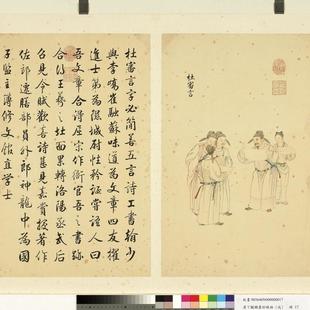 杜審言
杜審言字必簡善五言詩工書翰少
與李嶠崔融蘇味道為文章四友擢
進士第為隰城尉性矜誕嘗謂人曰
吾文章合得屈宋作衙官吾之書跡
合得王羲之北面累轉洛陽丞武后
召見令賦歡喜詩甚見嘉賞授著作
佐郎遷膳部員外郎神龍中為國
子監主簿修文館直學士